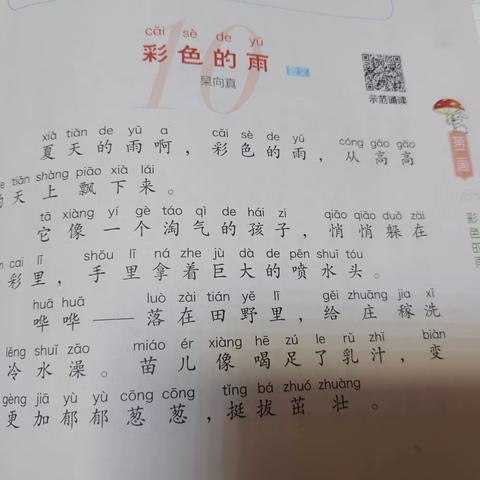 cǎi sè de yǔ
彩色的雨
10
杲向真
示范诵读
xià tiān de yǔ a cǎi sè de yǔ cóng gāo gāo
夏天的雨啊，彩色的雨，从高高
tiān shàng piāo xià lái
天上飘下来。
tā xiàng yí gè táo qì de hái zi qiāo qiāo duǒ zài
它像一个淘气的孩子，悄悄躲在
cai lǐ shǒu lǐ ná zhe jù dà de pēn shuǐ tóu
彩里，手里拿着巨大的喷水头。
huā huā luò zài tián yě lǐ gěi zhuāng jia xǐ
哗哗——落在田野里，给庄稼洗
lěng shuǐ zǎo miáo ér xiàng hē zú le rǔ zhī biàn
冷水澡。苗儿像喝足了乳汁，变
gèng jiā yù yù cōng cōng tǐng bá zhuó zhuàng
更加郁郁葱葱，挺拔茁壮。
第二周
彩色的雨